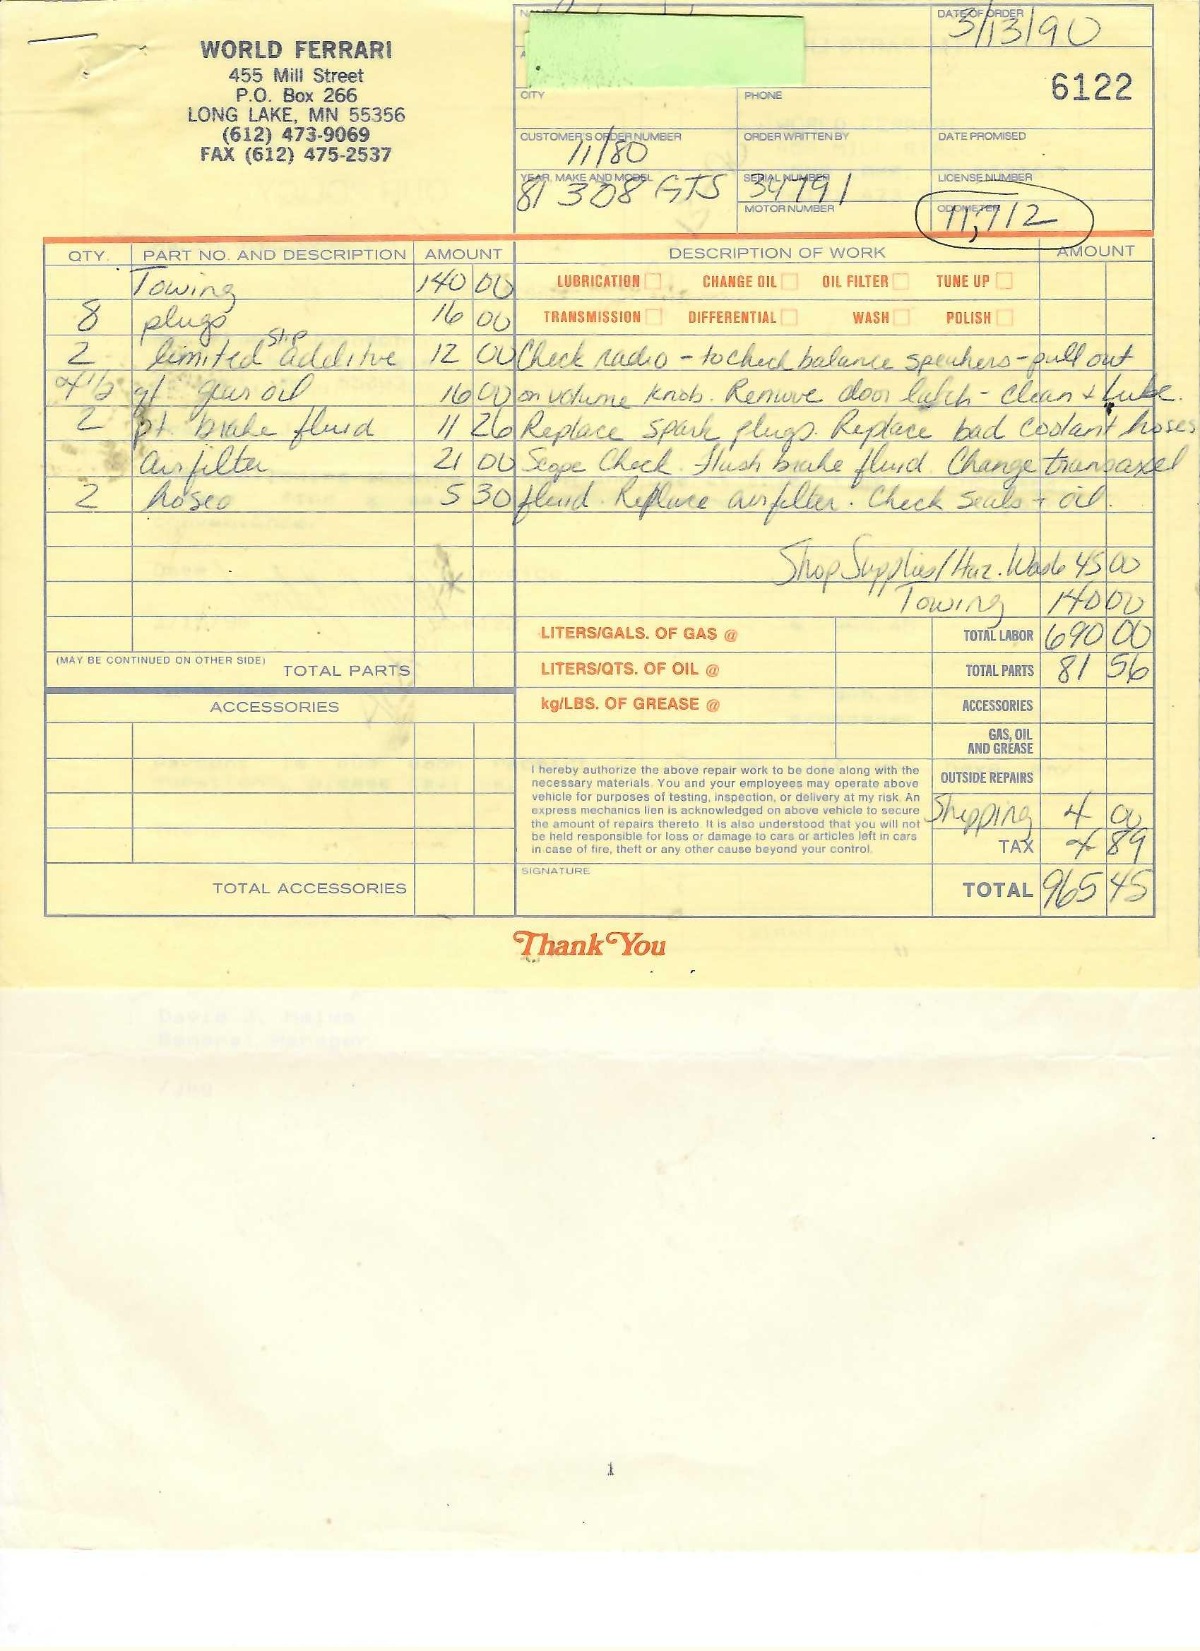 WORLD FERRARI
455 Mill Street
P.O. Box 266
LONG LAKE, MN 55356
(612) 473-9069
FAX (612) 475-2537
DATE OF ORDER
3/13/90
6122
CITY
PHONE
CUSTOMER'S ORDER NUMBER
11/80
ORDER WRITTEN BY
DATE PROMISED
YEAR, MAKE AND MODEL
81 308 GTS
SERIAL NUMBER
34791
LICENSE NUMBER
MOTOR NUMBER
ODOMETER
11,712
QTY. PART NO. AND DESCRIPTION AMOUNT DESCRIPTION OF WORK AMOUNT
Towing 140 00
LUBRICATION CHANGE OIL OIL FILTER TUNE UP
8 plugs 16 00
TRANSMISSION DIFFERENTIAL WASH POLISH
2 limited slip additive 12 00
Check radio - to check balance speakers - pull out
4 1/2 qt gear oil 16 00
on volume knob. Remove door latch - clean + lube.
2 pt brake fluid 11 26
Replace spark plugs. Replace bad coolant hoses
Air filter 21 00
Scope Check. Flush brake fluid. Change transaxel
2 hoses 5 30
fluid. Replace air filter. Check seals + oil.
Shop Supplies/Haz. Waste 45 00
Towing 140 00
LITERS/GALS. OF GAS @
TOTAL LABOR 690 00
(MAY BE CONTINUED ON OTHER SIDE) TOTAL PARTS
LITERS/QTS. OF OIL @
TOTAL PARTS 81 56
ACCESSORIES
kg/LBS. OF GREASE @
ACCESSORIES
GAS, OIL
AND GREASE
I hereby authorize the above repair work to be done along with the
necessary materials. You and your employees may operate above
vehicle for purposes of testing, inspection, or delivery at my risk. An
express mechanics lien is acknowledged on above vehicle to secure
the amount of repairs thereto. It is also understood that you will not
be held responsible for loss or damage to cars or articles left in cars
in case of fire, theft or any other cause beyond your control.
OUTSIDE REPAIRS
Shipping 4 00
TAX 4 89
SIGNATURE
TOTAL ACCESSORIES
TOTAL 965 45
Thank You
1